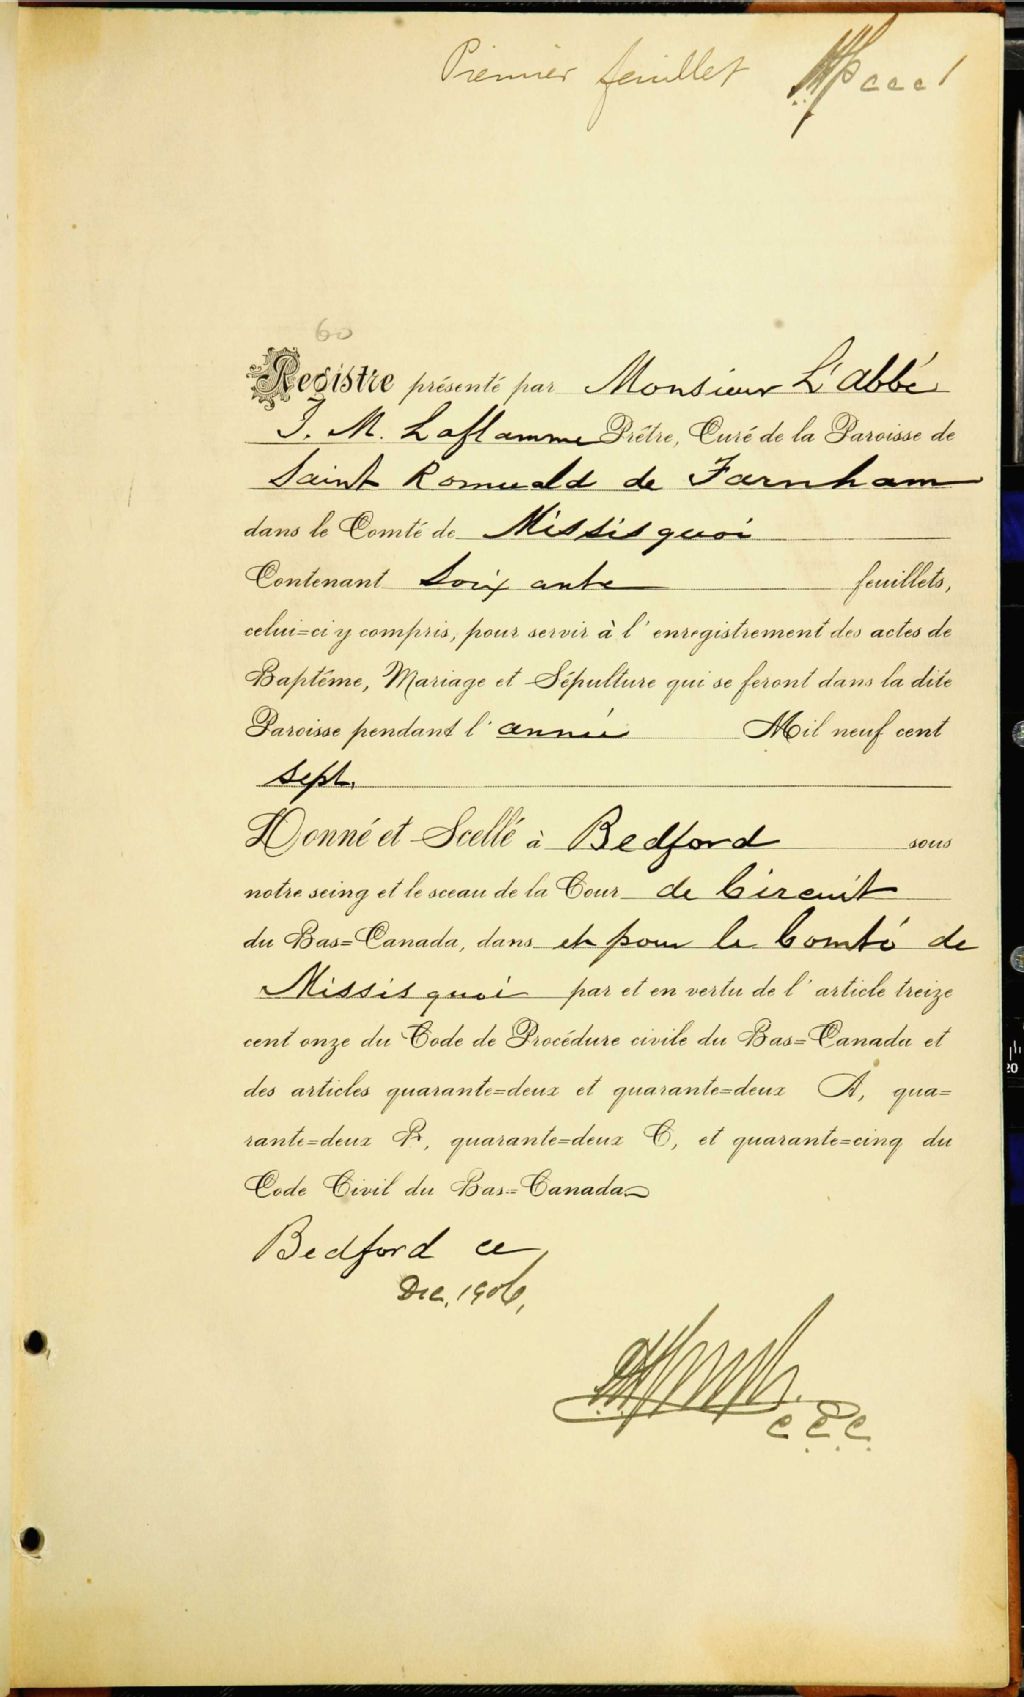 Premier feuillet c c c 1
60
Registre présenté par Monsieur L'abbé
J. M. Laflamme Prêtre, Curé de la Paroisse de
Saint Romuald de Farnham
dans le Comté de Missisquoi
Contenant Soixante feuillets,
celui=ci y compris, pour servir à l'enregistrement des actes de
Baptême, Mariage et Sépulture qui se feront dans la dite
Paroisse pendant l'année Mil neuf cent
sept.
Donné et Scellé à Bedford sous
notre seing et le sceau de la Cour de Circuit
du Bas=Canada, dans et pour le Comté de
Missisquoi par et en vertu de l'article treize
cent onze du Code de Procédure civile du Bas=Canada et
des articles quarante=deux et quarante=deux A, qua=
rante=deux B, quarante=deux C, et quarante=cinq du
Code Civil du Bas=Canada
Bedford ce
Dec. 1906,
C. C. C.